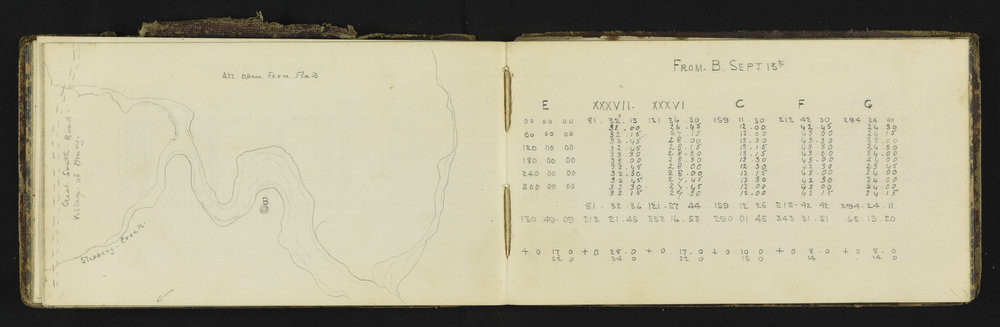 All open Fern Flats
Great South Road.
Village of Drury.
Slippery Creek
FROM. B. SEPT 13th
E XXXVII. XXXVI C F G
00 00 00 81. 32. 15 121 26 30 159 11 30 212 42 30 294 24 00
32.00 26.45 12.00 42.45 24.30
60 00 00 32.15 12.00 43.00
32.45 28.00 13.15 43.00
120 00 00 32.45 28.15 13.15 43.00 24.30
33.30 28.00 13.30 43.00
180 00 00 33.00 28.30 12.30 43.00
32.30 28.00 12.30
240 00 00 32.30 28.00 12.15 43.00 24.00
32.45 27.45 12.30 42.30 24.00
300 00 00 32.30 27.45 12.00 42.00 24.00
32.15 24.30 12.00 42.15 24.15
81. 32. 36 121. 27. 44 159. 12. 26 212. 42. 42 294. 24. 11
130. 49. 09 212 21. 45 252 16. 53 290 01 45 343 31. 51 65. 13. 20
+ 0 17 0 + 0 28. 0 + 0 17. 0 + 0 10 0 + 0 8. 0 + 0 8. 0
22 0 34 0 22 0 15 0 14 14 0